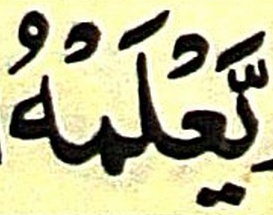 يَّعْلَمْهُ